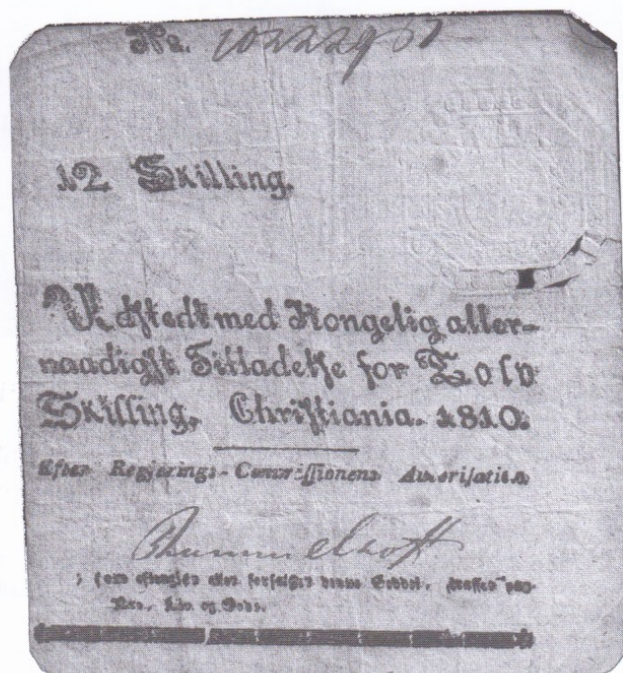 No. 10222967
12 Skilling.
Udstedt med Kongelig aller-
naadigst Tilladelse for Tolv
Skilling. Christiania. 1810.
Efter Regjerings-Commissionens Autorisation
som eftergjør eller forfalsker denne Seddel, straffes paa
Ære, Liv og Gods.